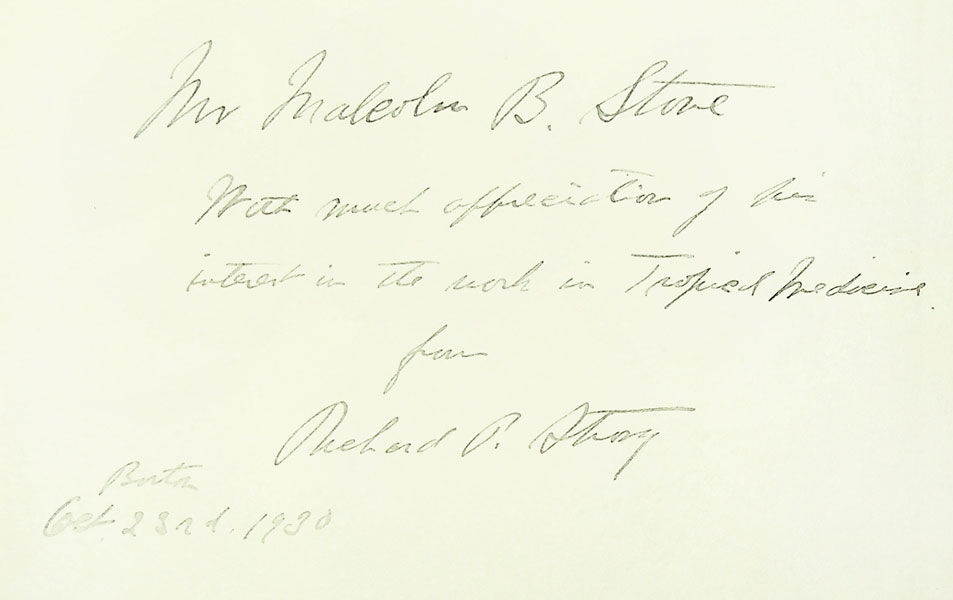 Mr Malcolm B. Stone
With much appreciation of his
interest in the work in Tropical Medicine.
from
Richard P. Strong
Boston
Oct. 23rd. 1930